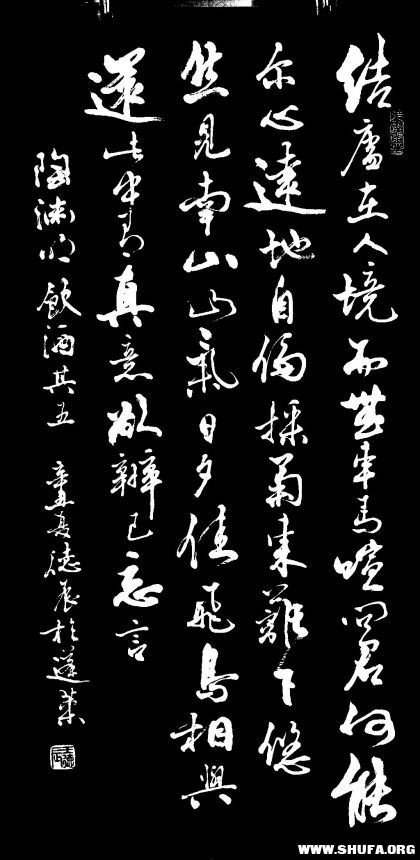 結廬在人境而無車馬喧問君何能
尔心遠地自偏採菊東籬下悠
然見南山山氣日夕佳飛鳥相與
還此中有真意欲辨已忘言
陶淵明飲酒其五 辛丑夏德展於蓬萊
WWW.SHUFA.ORG